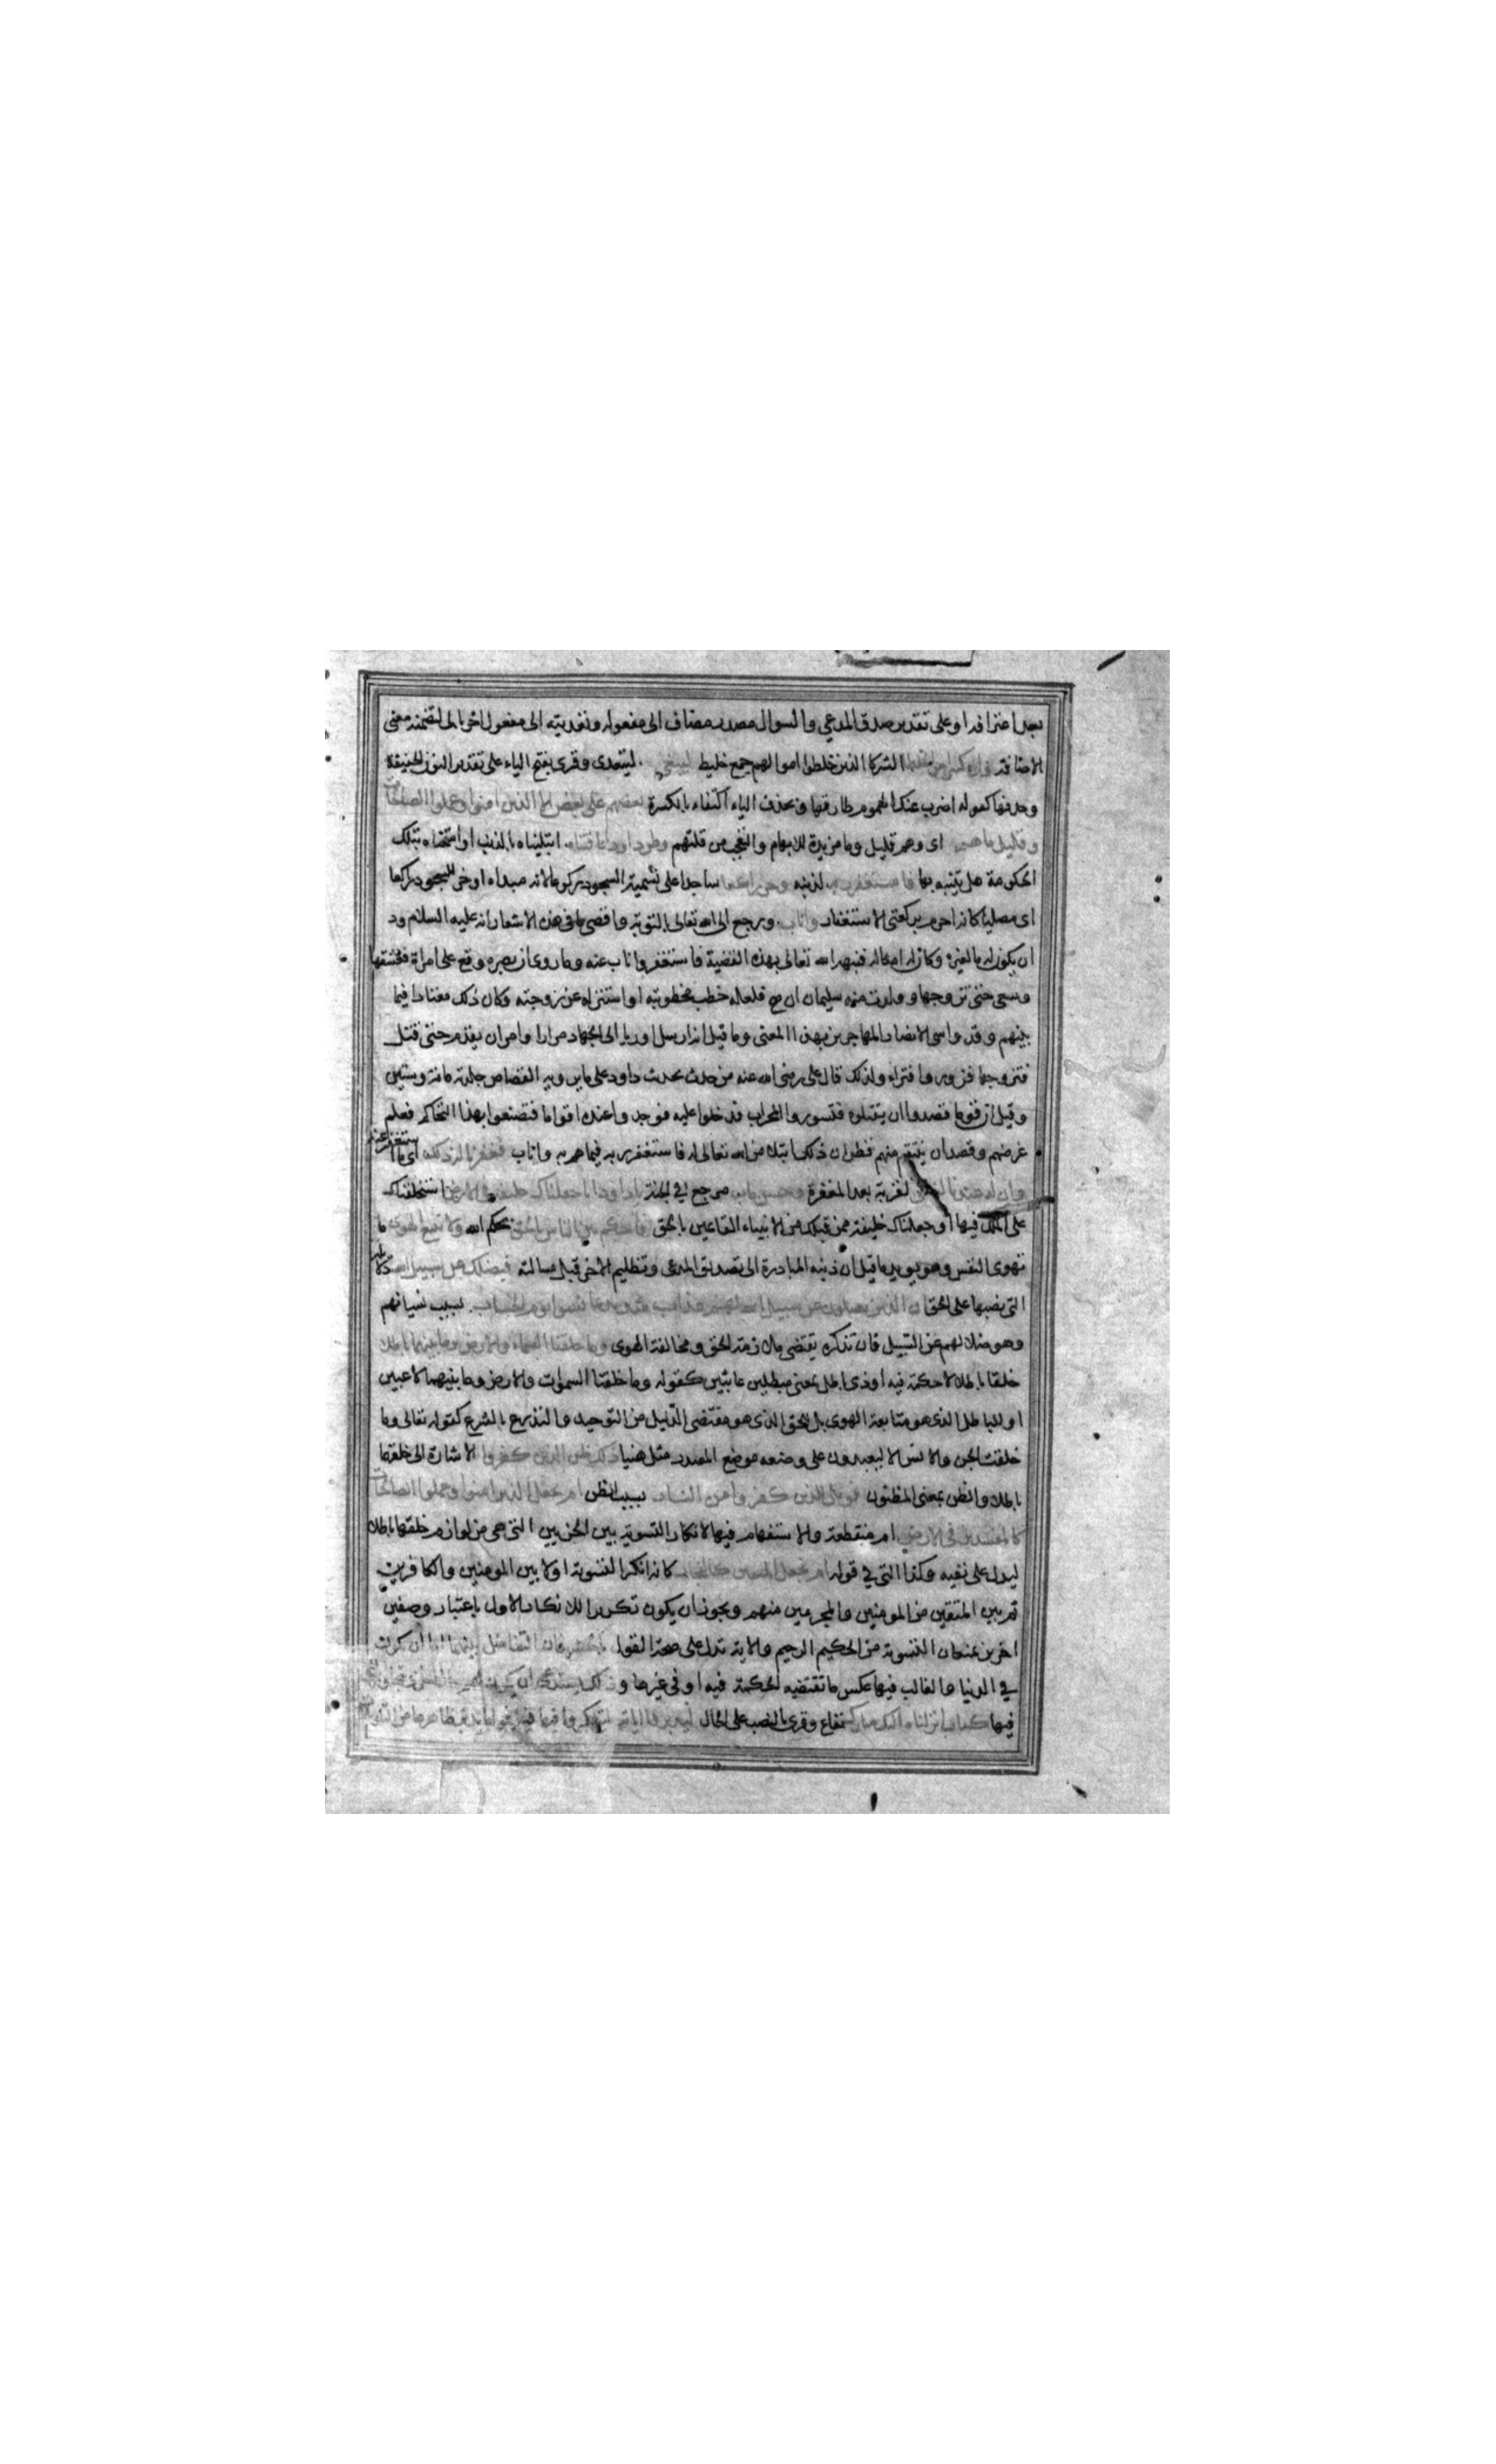 بعد اعترافه او على تقدير صدق المدعي والسوال مصدر مضاف الى مفعوله وتعديته الى مفعول اخر بالى لتضمنه معنى
الاضافة وان كثيرا من الخلطاء الشركا الذين خلطوا اموالهم جمع خليط ليبغي ليتعدى وقرى بفتح الياء على تقدير النون الخفيفة
وحذفها كقوله اضرب عنك الهموم طارقها وبحذف الياء اكتفاء بالكسرة بعضهم على بعض الا الذين امنوا وعملوا الصالحات
وقليل ما هم اى وهم قليل وما مزيدة للابهام والتعجب من قلتهم وظن داود انما فتناه ابتليناه بالذنب او امتحناه بتلك
الحكومة هل يتنبه بها فاستغفر ربه لذنبه وخر راكعا ساجدا على تسمية السجود ركوعا لانه مبداه او خر للسجود راكعا
اى مصليا كانه احرم بركعتى الاستغفار واناب ورجع الى الله تعالى بالتوبة واقصى ما في هذه الاشعار انه عليه السلام ود
ان يكون له ما لغيره وكان له امثاله فنبهه الله تعالى بهذه القضية فاستغفر واناب عنه وما روى ان بصره وقع على امراة فعشقها
وسعى حتى تزوجها وولدت منه سليمان ان صح فلعله خطب مخطوبته او استنزله عن زوجته وكان ذلك معتادا فيما
بينهم وقد واسى الانصار المهاجرين بهذا المعنى وما قيل انه ارسل اوريا الى الجهاد مرارا وامر ان يقدم حتى قتل
فتزوجها فزور وافتراء ولذلك قال على رضى الله عنه من حدث بحديث داود على ما يرويه القصاص جلدته مائة وستين
وقيل ان قوما قصدوا ان يقتلوه فتسوروا المحراب فدخلوا عليه فوجدوا عنده اقواما فتصنعوا بهذا التحاكم فعلم
غرضهم وقصد ان ينتقم منهم فظن ان ذلك ابتلاء من الله تعالى له فاستغفر ربه فيما هم به واناب فغفرنا له ذلك اى ما استغفر عنه
وان له عندنا لزلفى لقربة بعد المغفرة وحسن ماب مرجع في الجنة يا داود انا جعلناك خليفة في الارض استخلفناك
على الملك فيها او جعلناك خليفة ممن قبلك من الانبياء القائمين بالحق فاحكم بين الناس بالحق بحكم الله ولا تتبع الهوى ما
تهوى النفس وهو يويد ما قيل ان ذنبه المبادرة الى تصديق المدعى وتظليم الاخر قبل مسالته فيضلك عن سبيل الله دلايله
التى نصبها على الحق ان الذين يضلون عن سبيل الله لهم عذاب شديد بما نسوا يوم الحساب بسبب نسيانهم
وهو ضلالهم عن السبيل فان تذكره يقتضى ملازمة الحق ومخالفة الهوى وما خلقنا السماء والارض وما بينهما باطلا
خلقا باطلا لا حكمة فيه او ذوى باطل بمعنى مبطلين عابثين كقوله وما خلقنا السموات والارض وما بينهما لاعبين
او للباطل الذى هو متابعة الهوى بل للحق الذى هو مقتضى الدليل من التوحيد والتذرع بالشرع كقوله تعالى وما
خلقت الجن والانس الا ليعبدون على وضعه موضع المصدر مثل هنيا ذلك ظن الذين كفروا الاشارة الى خلقها
باطلا والظن بمعنى المظنون فويل للذين كفروا من النار بسبب الظن ام نجعل الذين امنوا وعملوا الصالحات
كالمفسدين في الارض ام منقطعة والاستفهام فيها لانكار التسوية بين الحزبين التى هى من لوازم خلقها باطلا
ليدل على نفيه وكذا التى في قوله ام نجعل المتقين كالفجار كانه انكر التسوية اولا بين المومنين والكافرين
ثم بين المتقين من المومنين والمجرمين منهم ويجوز ان يكون تكريرا للانكار الاول باعتبار وصفين
اخرين يمنعان التسوية من الحكيم الرحيم والاية تدل على صحة القول بالحشر فان التفاضل بينهما اما ان يكون
في الدنيا والغالب فيها عكس ما تقتضيه الحكمة فيه او في غيرها وذلك يستدعى ان يكون لهم
فيها كتاب انزلناه اليك مبارك نفاع وقرى بالنصب على الحال ليدبروا اياته ليتفكروا فيها